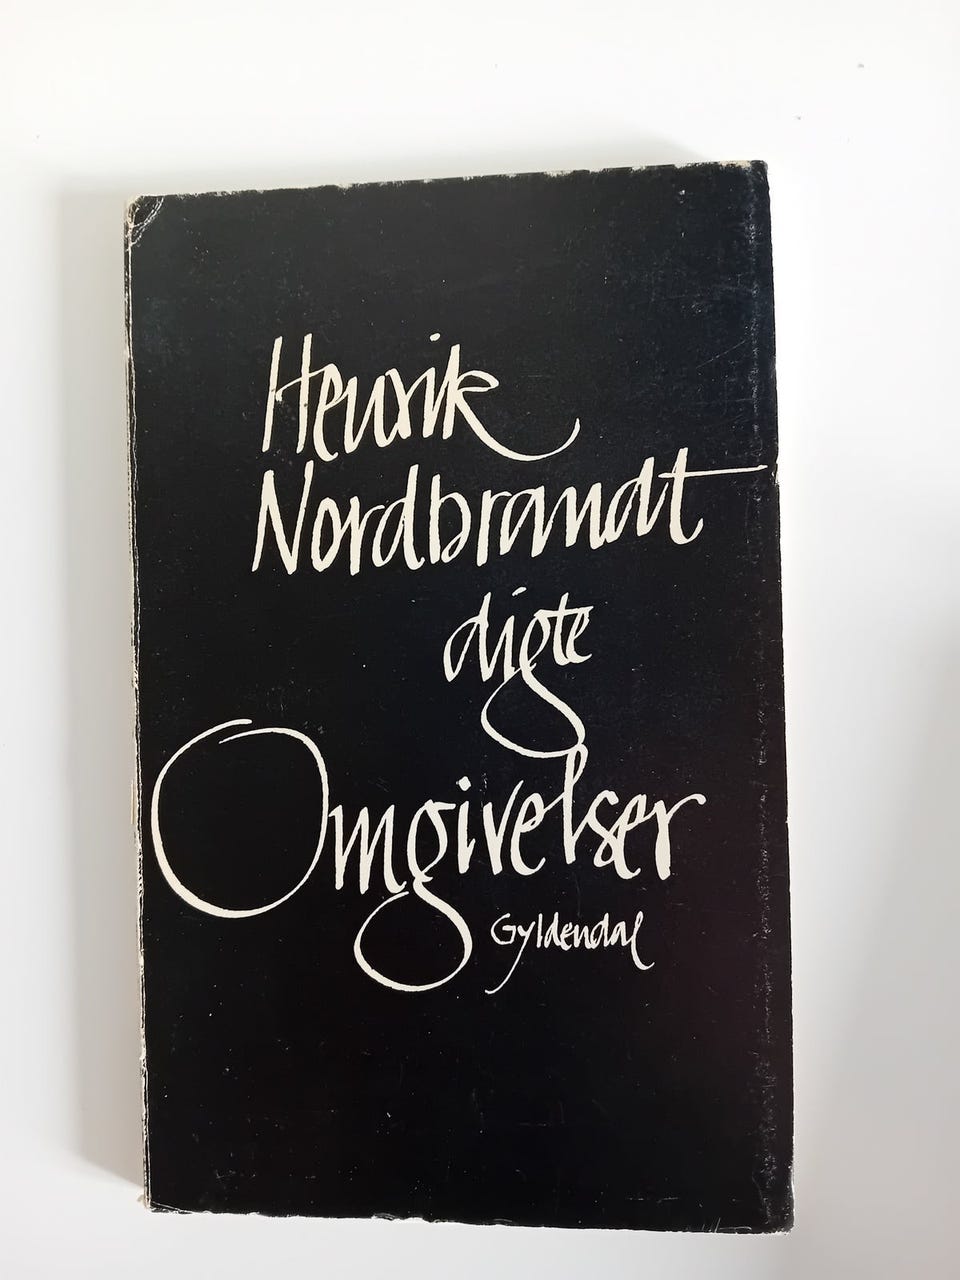 Henrik
Nordbrandt
digte
Omgivelser
Gyldendal